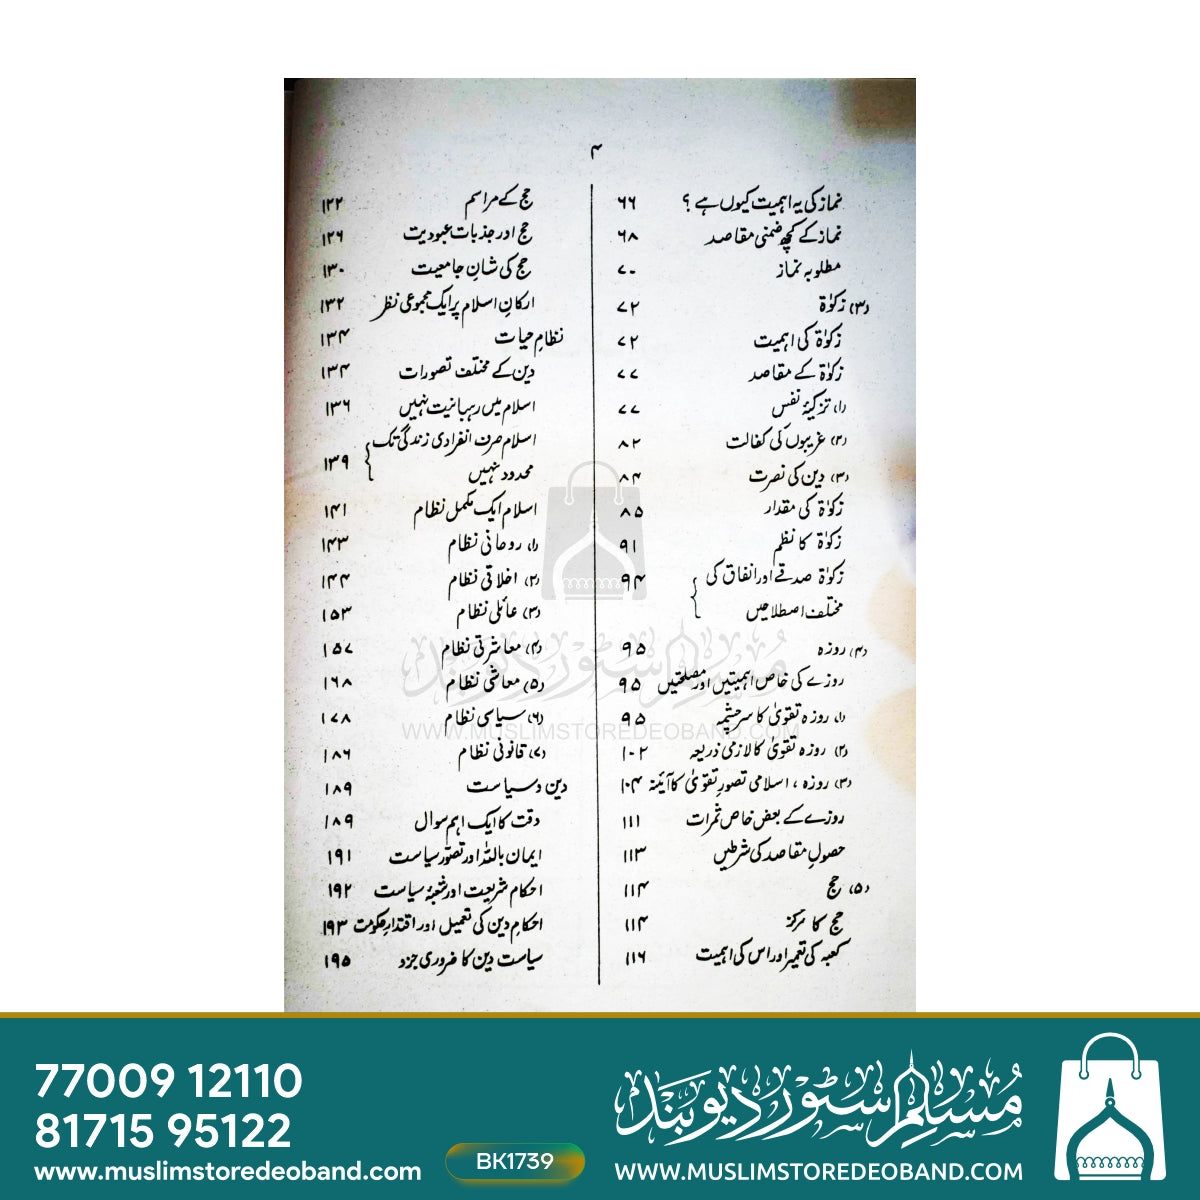 ۴
نماز کی یہ اہمیت کیوں ہے ؟ ۶۶
نماز کے کچھ ضمنی مقاصد ۶۸
مطلوبہ نماز ۷۰
(۳) زکوٰۃ ۷۲
زکوٰۃ کی اہمیت ۷۲
زکوٰۃ کے مقاصد ۷۷
(۱) تزکیۂ نفس ۷۷
(۲) غریبوں کی کفالت ۸۲
(۳) دین کی نصرت ۸۴
زکوٰۃ کی مقدار ۸۵
زکوٰۃ کا نظم ۹۱
زکوٰۃ صدقے اور انفاق کی ۹۴
مختلف اصطلاحیں
(۴) روزہ ۹۵
روزے کی خاص اہمیتیں اور مصلحتیں ۹۵
(۱) روزہ تقویٰ کا سرچشمہ ۹۵
(۲) روزہ تقویٰ کا لازمی ذریعہ ۱۰۲
(۳) روزہ ، اسلامی تصورِ تقویٰ کا آئینہ ۱۰۴
روزے کے بعض خاص ثمرات ۱۱۱
حصولِ مقاصد کی شرطیں ۱۱۳
(۵) حج ۱۱۴
حج کا مرکز ۱۱۴
کعبہ کی تعمیر اور اس کی اہمیت ۱۱۶
حج کے مراسم ۱۲۲
حج اور جذبات عبودیت ۱۲۶
حج کی شانِ جامعیت ۱۳۰
ارکانِ اسلام پر ایک مجموعی نظر ۱۳۲
نظامِ حیات ۱۳۴
دین کے مختلف تصورات ۱۳۴
اسلام میں رہبانیت نہیں ۱۳۶
اسلام صرف انفرادی زندگی تک
محدود نہیں ۱۳۹
اسلام ایک مکمل نظام ۱۴۱
(۱) روحانی نظام ۱۴۳
(۲) اخلاقی نظام ۱۴۴
(۳) عائلی نظام ۱۵۳
(۴) معاشرتی نظام ۱۵۷
(۵) معاشی نظام ۱۶۸
(۶) سیاسی نظام ۱۷۸
(۷) قانونی نظام ۱۸۶
دین و سیاست ۱۸۹
وقت کا ایک اہم سوال ۱۸۹
ایمان باللہ اور تصوّر سیاست ۱۹۱
احکام شریعت اور شعبۂ سیاست ۱۹۲
احکامِ دین کی تعمیل اور اقتدارِ حکومت ۱۹۳
سیاست دین کا ضروری جزو ۱۹۵
مسلم سٹور دیوبند
WWW.MUSLIMSTOREDEOBAND.COM
77009 12110
81715 95122
www.muslimstoredeoband.com
BK1739
مسلم سٹور دیوبند
WWW.MUSLIMSTOREDEOBAND.COM